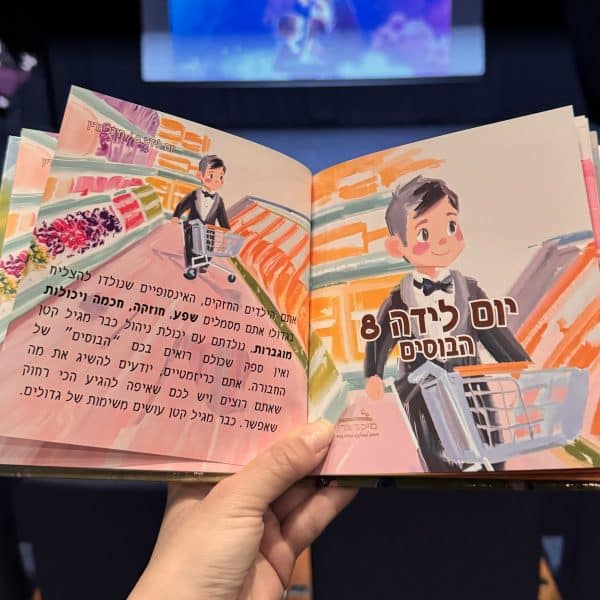 יום לידה 8
הבוסים
יום לידה 8
אתם הילדים החזקים, האינסופיים שנולדו להצליח
בגדול! אתם מסמלים שפע, חוזקה, חכמה ויכולות
מוגברות. נולדתם עם יכולת ניהול כבר מגיל קטן
ואין ספק שכולם רואים בכם "הבוסים" של
החבורה. אתם כריזמטיים, יודעים להשיג את מה
שאתם רוצים ויש לכם שאיפה להגיע הכי רחוק
שאפשר. כבר מגיל קטן עושים משימות של גדולים.